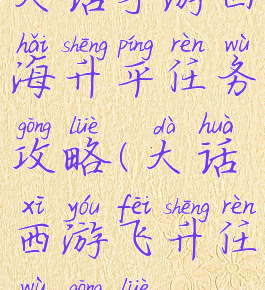 大话手游四
hǎi shēng píng rèn wù
海升平任务
gōng lüè dà huà
攻略(大话
xī yóu fēi shēng rèn
西游飞升任
wù gōng lüè